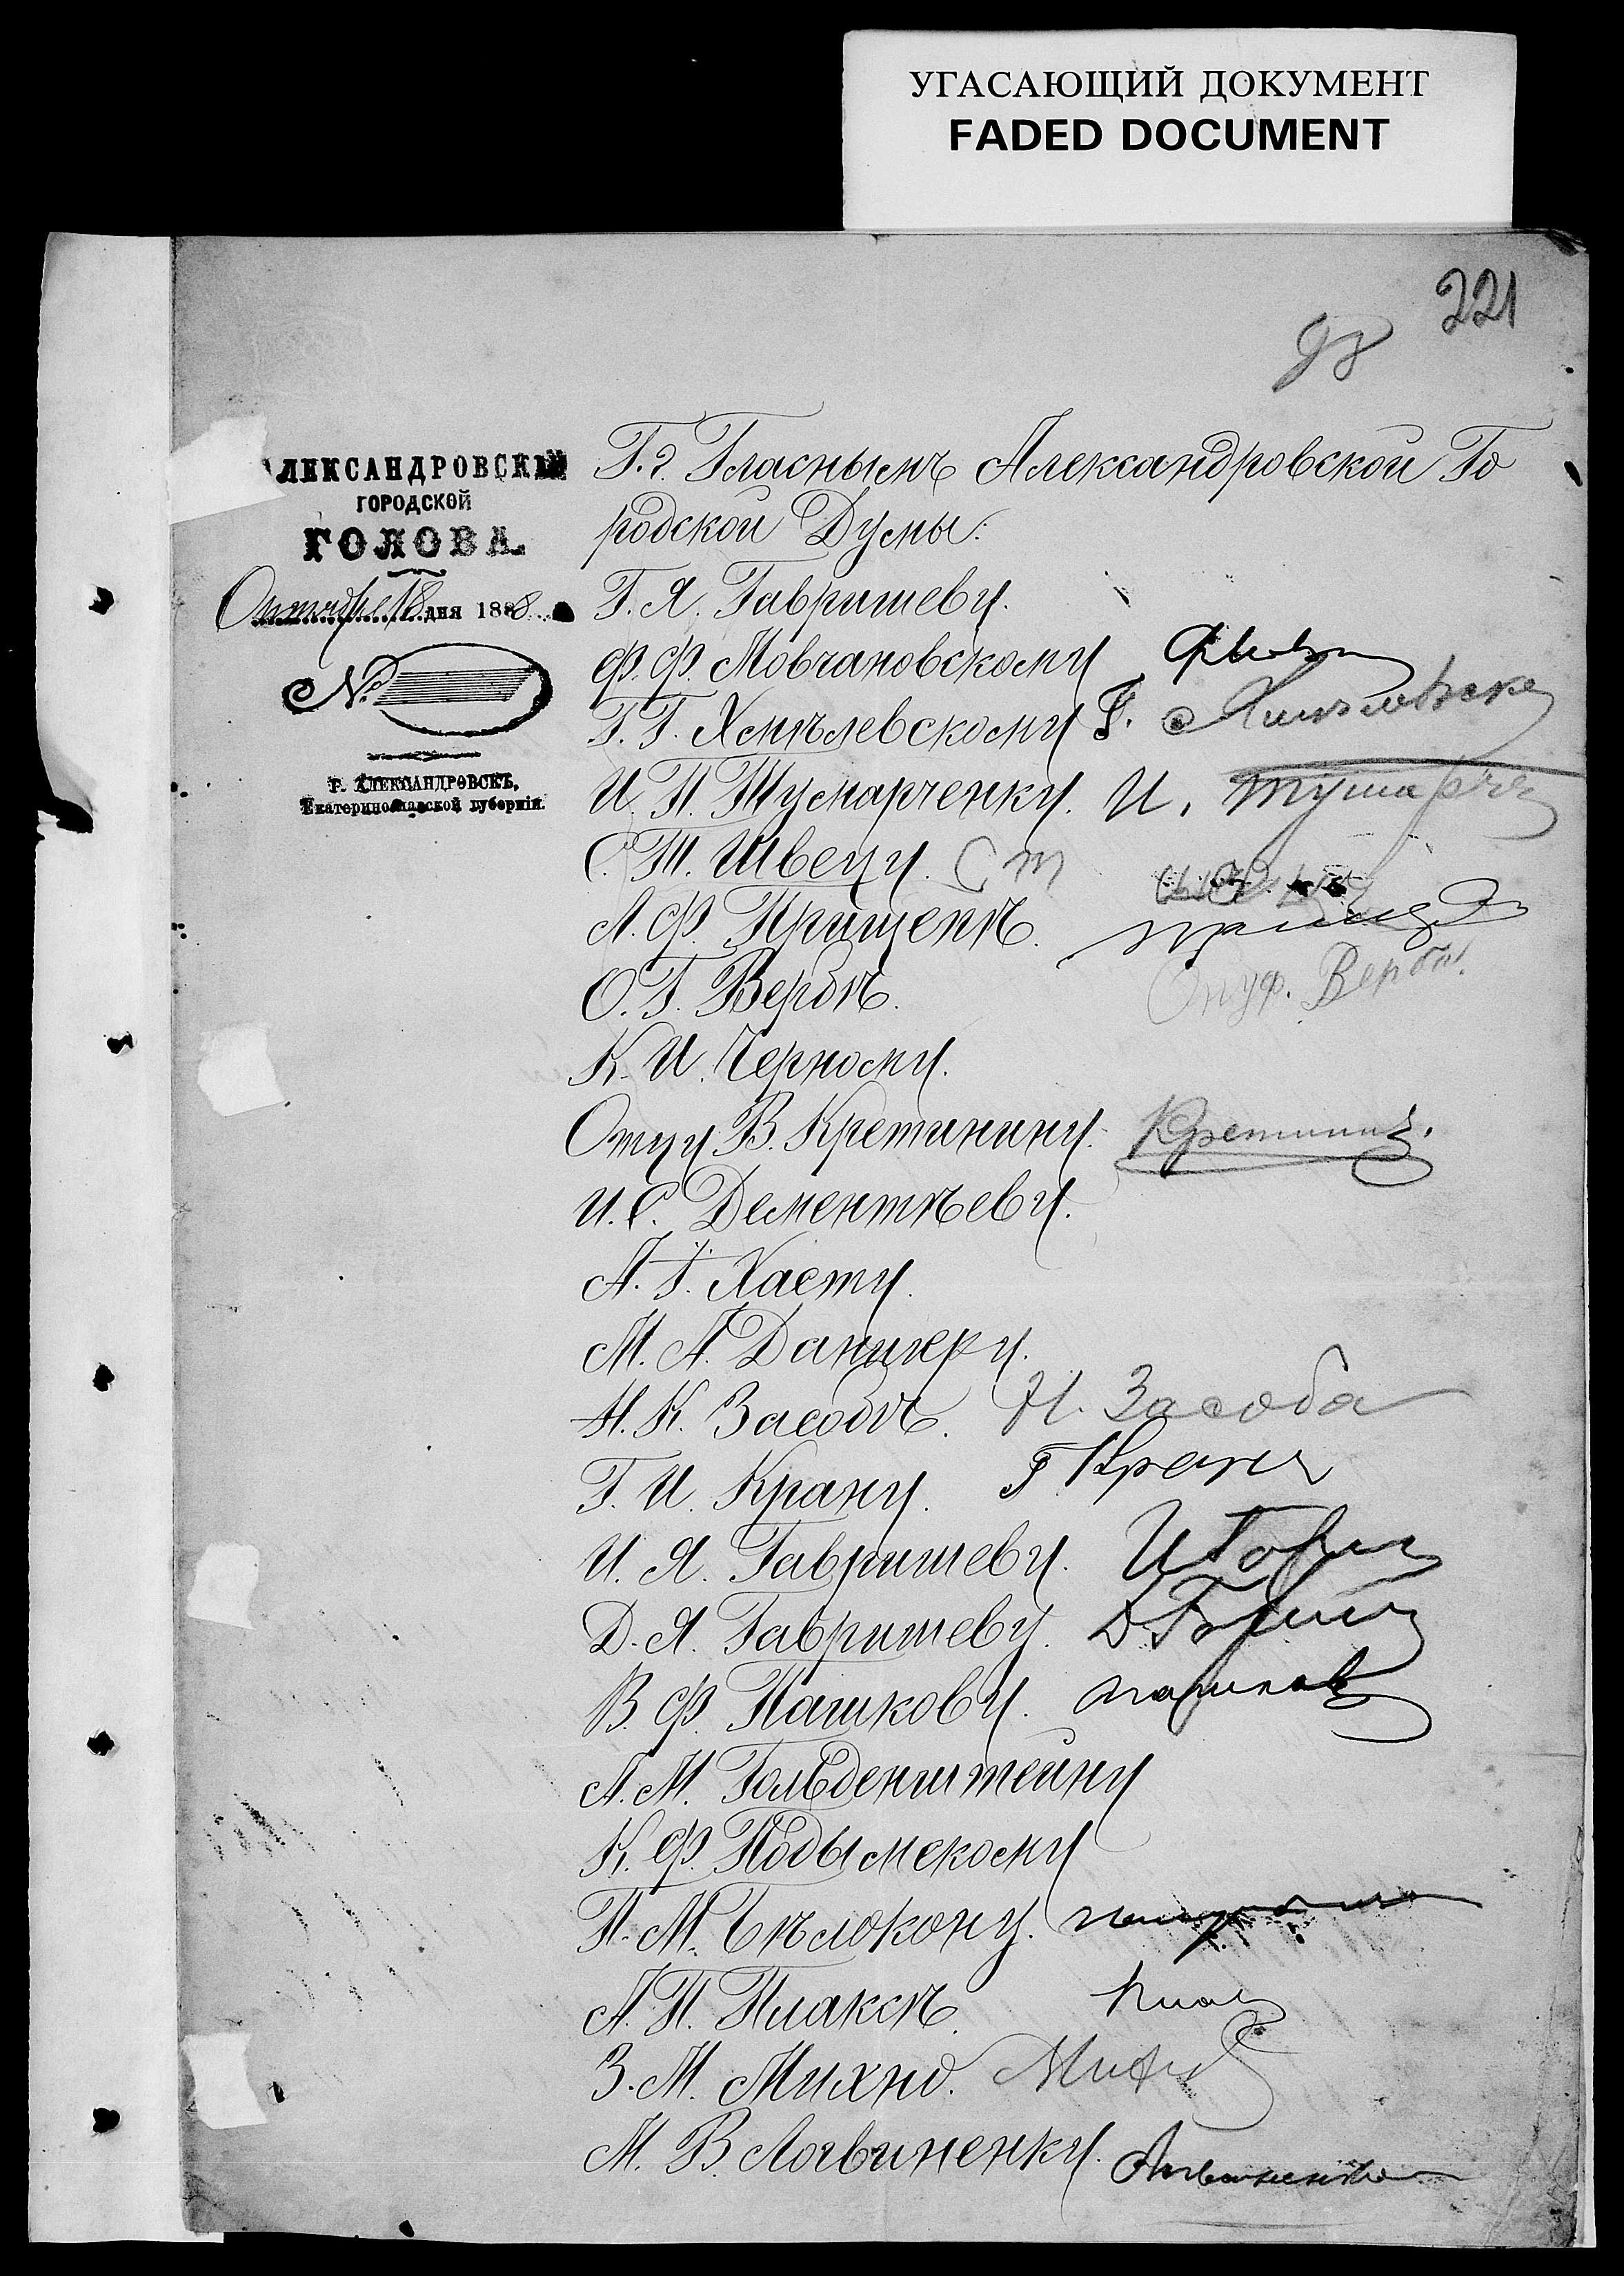 УГАСАЮЩИЙ ДОКУМЕНТ
FADED DOCUMENT
221
98
ЛЕКСАНДРОВСКІЙ
ГОРОДСКОЙ
ГОЛОВА.
Октября 18 дня 1888
№
Г. АЛЕКСАНДРОВСКЪ,
Екатеринославской губерніи.
Г.г. Гласнымъ Александровской Го
родской Думы:
Г. Я. Гавришеву.
Ф. Ф. Мовчановскому
Г. Г. Хмѣлевскому Г. Хмѣлевск
И. П. Тушарченку. И. Тушарче
С. Т. Швецу. С Т
А. Ф. Прищепѣ.
О. Г. Вербѣ. Онуф. Верба
К. И. Черному.
Отцу В. Кретинину. Кретининъ.
И. С. Дементѣеву.
А. Г. Хаету.
М. А. Данцигеру.
Н. К. Засобѣ. Н. Засоба
Г. И. Крану. Г Кранъ
И. Я. Гавришеву. И Гаври
Д. Я. Гавришеву. Д Гаври
В. Ф. Пашкову. Пашковъ
А. М. Гольденштейну
К. Ф. Подымскому
П. М. Бѣлокону.
А. П. Плаксѣ.
З. М. Михно. Михно
М. В. Логвиненку. Логвиненко